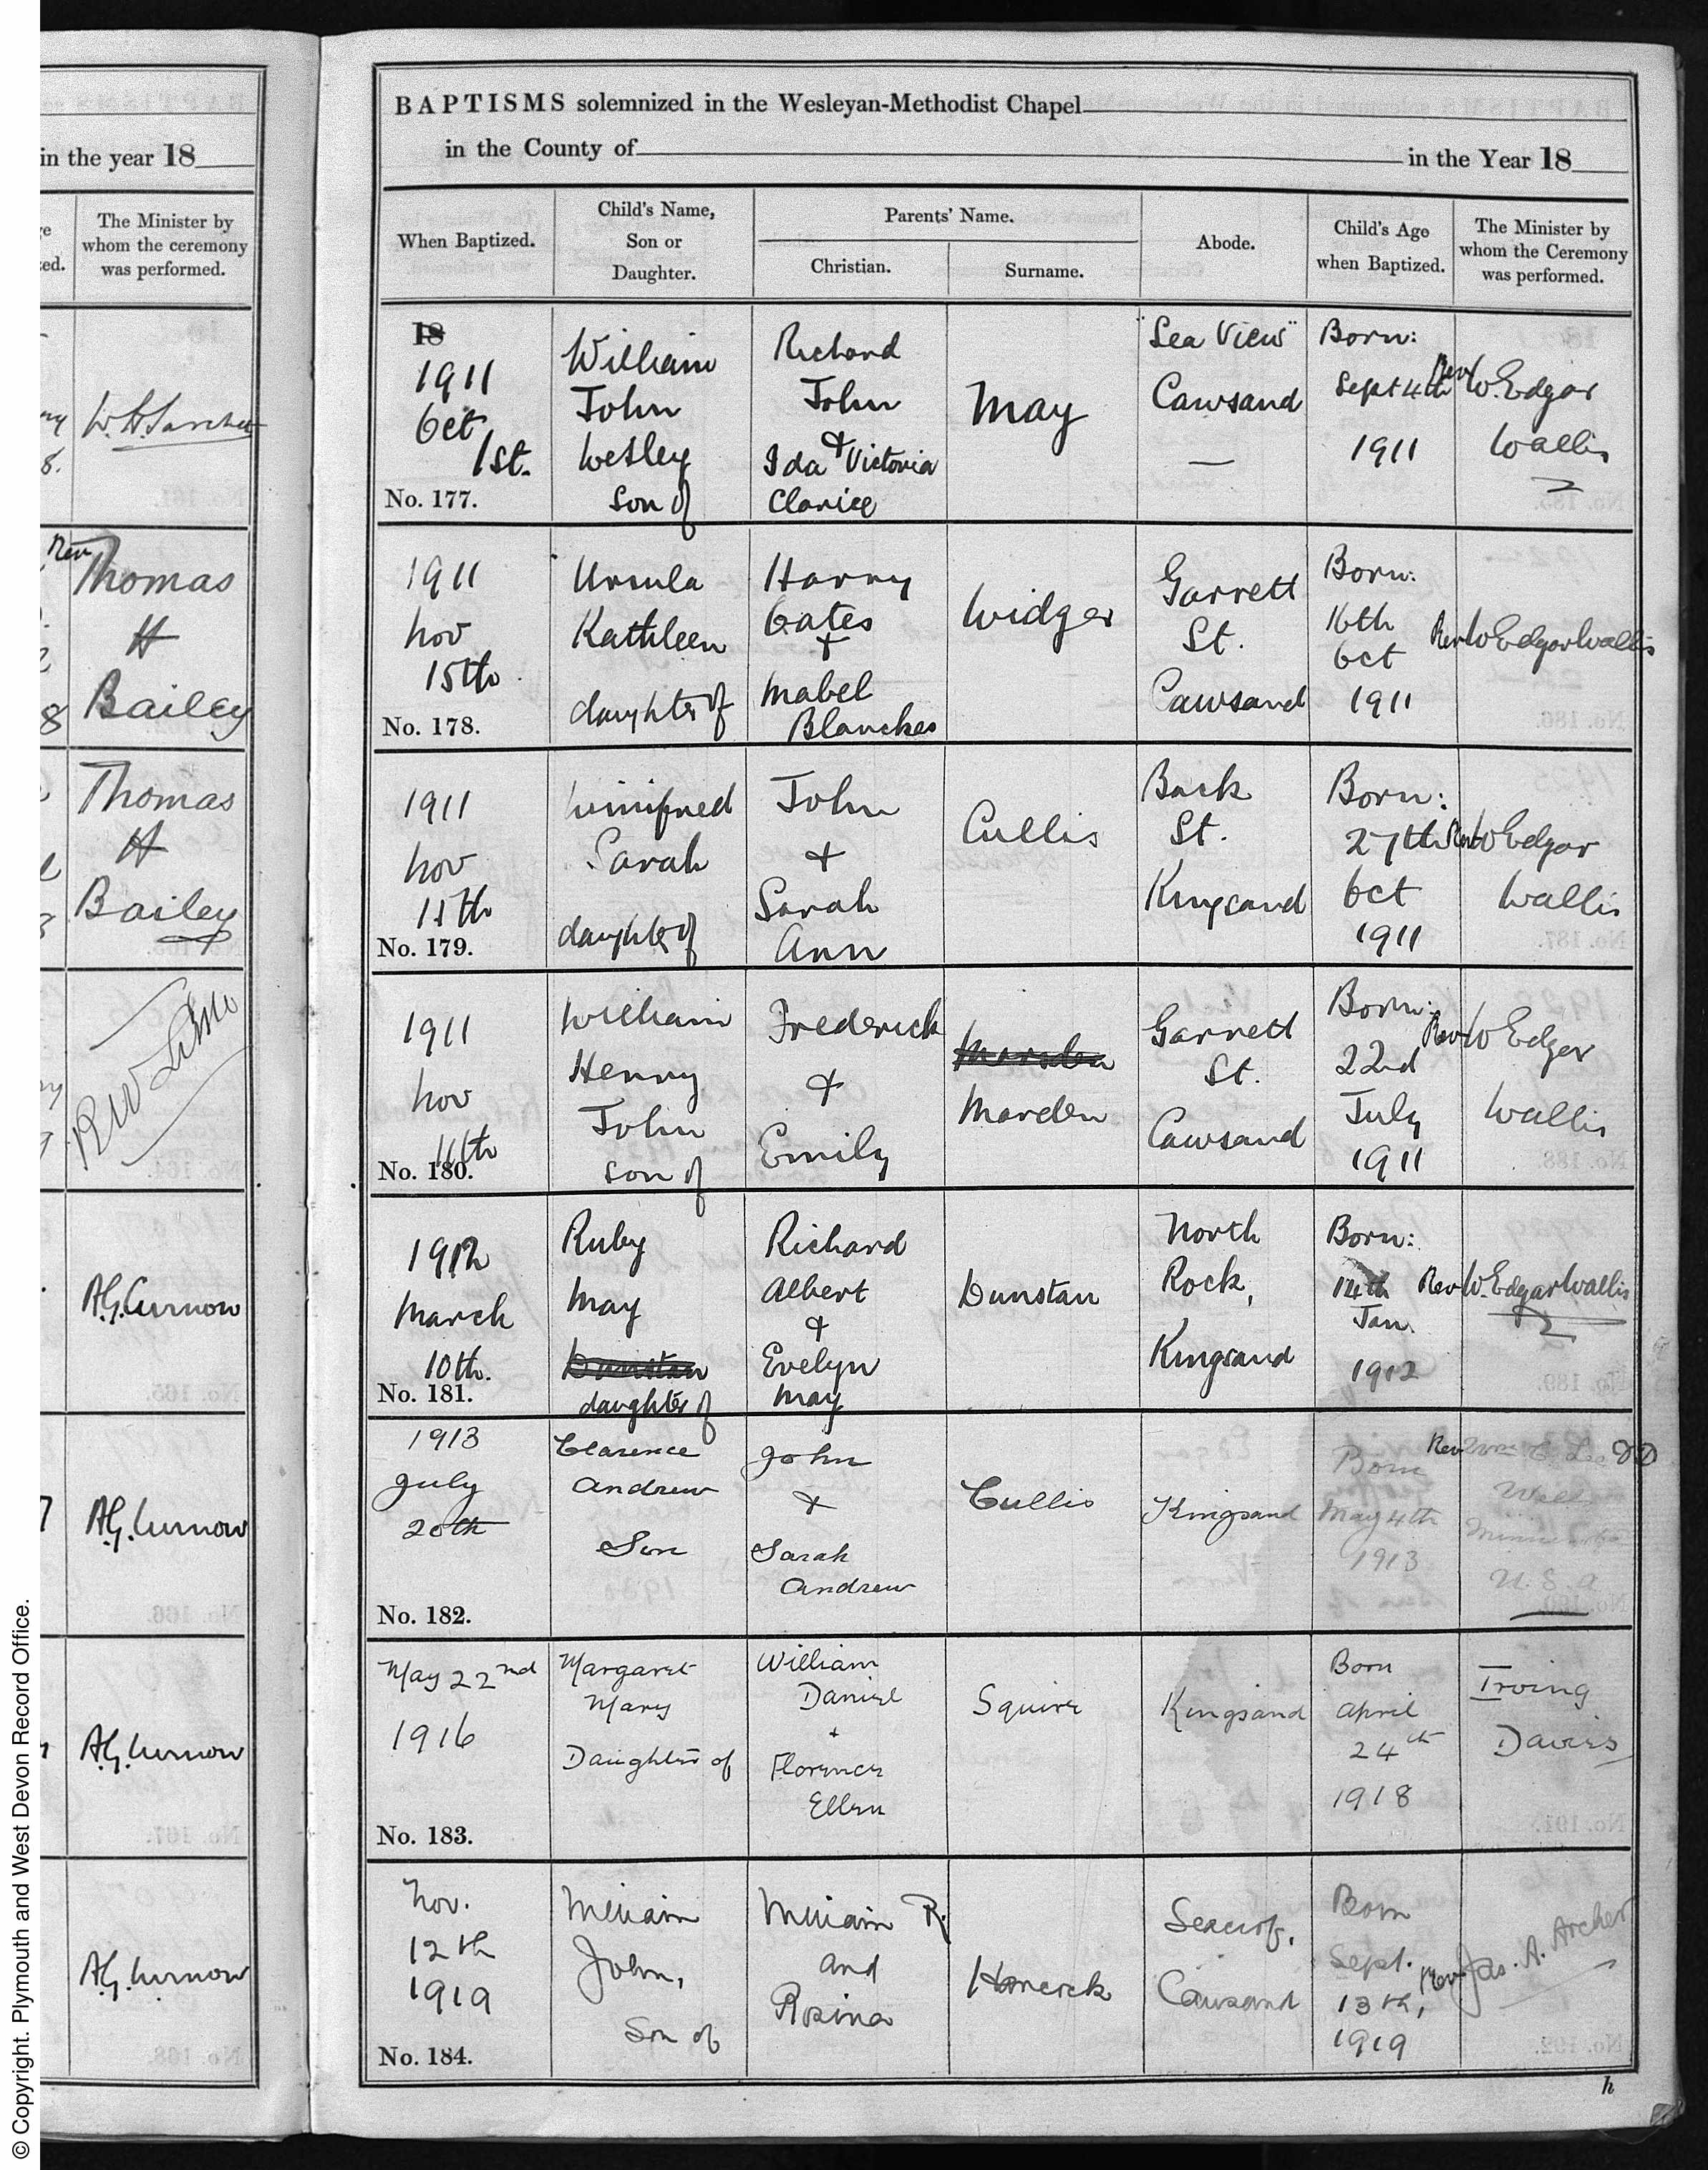 in the year 18
The Minister by
whom the ceremony
was performed.
Rev
Thomas
H
Bailey
Thomas
H
Bailey
A.G. Curnow
A.G. Curnow
A.G. Curnow
A.G. Curnow
BAPTISMS solemnized in the Wesleyan-Methodist Chapel
in the County of in the Year 18
When Baptized.
Child's Name,
Son or
Daughter.
Parents' Name.
Christian.
Surname.
Abode.
Child's Age
when Baptized.
The Minister by
whom the Ceremony
was performed.
18
1911
Oct
1st.
No. 177.
William
John
Wesley
Son of
Richard
John
+
Ida Victoria
Clarice
May
"Sea View"
Cawsand
Born:
Sept 4th
1911
Rev W. Edgar
Wallis
1911
Nov
15th
No. 178.
Ursula
Kathleen
daughter of
Harry
Oates
+
Mabel
Blanches
Widger
Garrett
St.
Cawsand
Born:
16th
Oct
1911
Rev W Edgar Wallis
1911
Nov
15th
No. 179.
Winifred
Sarah
daughter of
John
+
Sarah
Ann
Cullis
Back
St.
Kingsand
Born:
27th
Oct
1911
Rev W Edgar
Wallis
1911
Nov
16th
No. 180.
William
Henry
John
son of
Frederick
+
Emily
Marden
Garrett
St.
Cawsand
Born:
22nd
July
1911
Rev W Edgar
Wallis
1912
March
10th.
No. 181.
Ruby
May
Dunstan
daughter of
Richard
Albert
+
Evelyn
May
Dunstan
North
Rock,
Kingsand
Born:
14th
Jan
1912
Rev W. Edgar Wallis
1913
July
20th
No. 182.
Clarence
Andrew
Son
John
+
Sarah
Andrew
Cullis
Kingsand
Born
May 4th
1913
Rev
DD
U.S.A
May 22nd
1916
No. 183.
Margaret
Mary
Daughter of
William
Daniel
+
Florence
Ellen
Squire
Kingsand
Born
April
24th
1918
Irving
Davies
Nov.
12th
1919
No. 184.
William
John,
Son of
William R.
and
Rosina
Cawsand
Born
Sept.
13th,
1919
Rev Jas. A. Archer
h
© Copyright. Plymouth and West Devon Record Office.